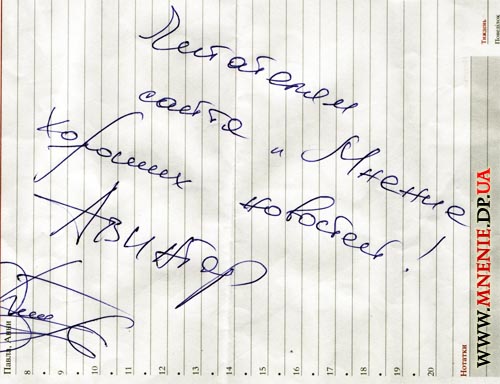 Читателям
сайта "Мнение
хороших новостей!
АВИАТОР
Павла, Анни
8
9
10
11
12
13
14
15
16
17
18
19
20
Нотатки
Тиждень
Понеділок
WWW.MNENIE.DP.UA